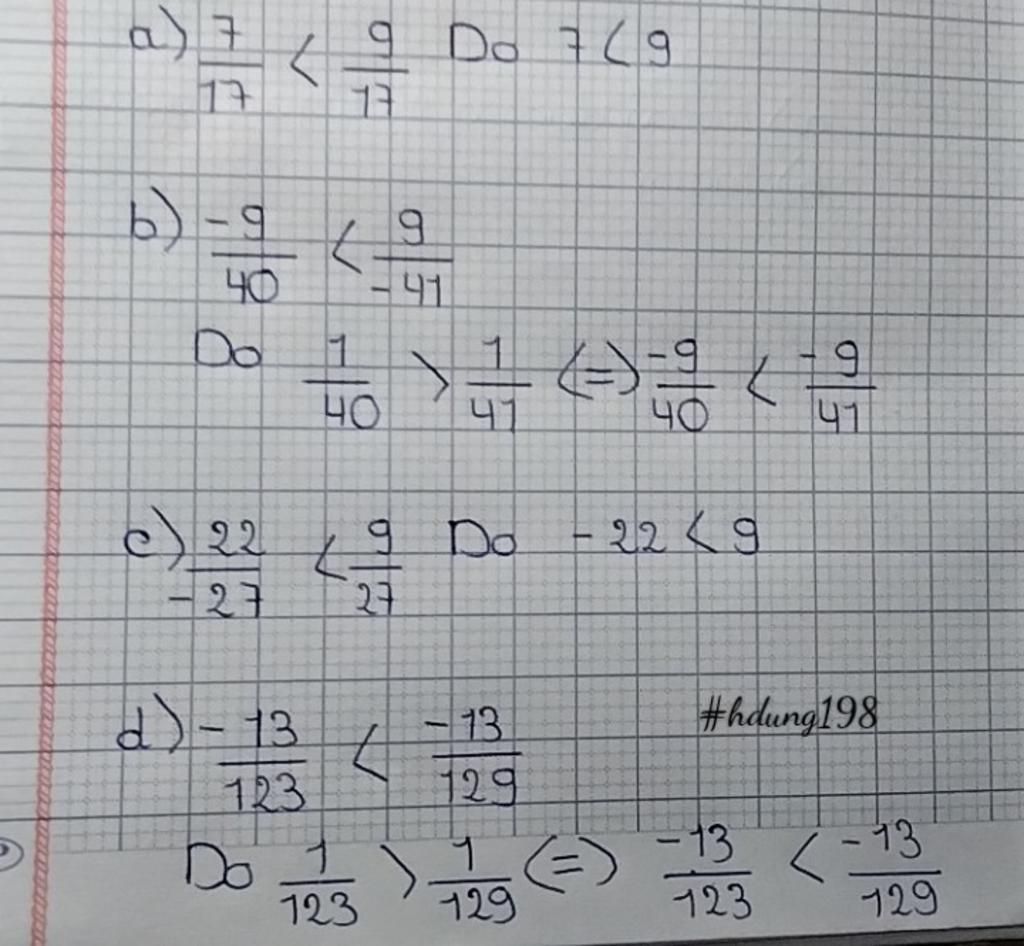 a) 7/17 < 9/17 Do 7 < 9
b) -9/40 < 9/-41
Do 1/40 > 1/41 (=) -9/40 < -9/41
c) 22/-27 < 9/27 Do -22 < 9
d) -13/123 < -13/129
#hdung198
Do 1/123 > 1/129 (=) -13/123 < -13/129